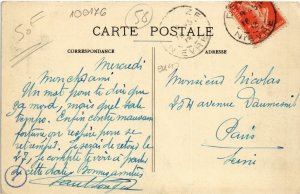 5of
100176
58
CARTE POSTALE
CORRESPONDANCE
ADRESSE
Mercredi
Mon cher ami
Un mot pour te dire que
ça mord, mais quel sale
temps. Enfin contre mauvaise
fortune on espère pour se
. Je serai de retour le
27, je compte te voir à
de cette date. Bonnes amitiés
Monsieur Nicolas
254 avenue Daumesnil
Paris
Seine